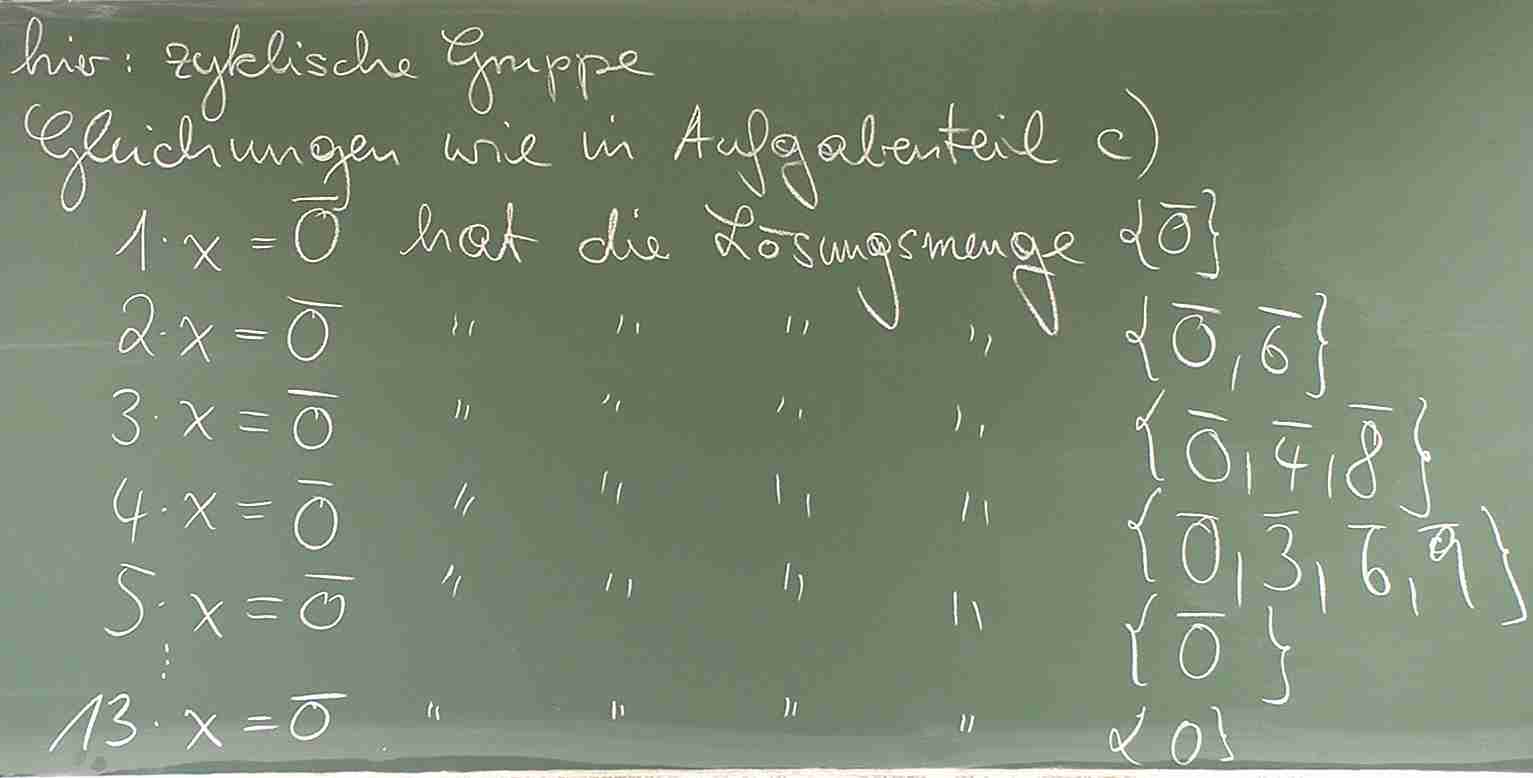 hier: zyklische Gruppe
Gleichungen wie in Aufgabenteil c)
1·x = 0̅ hat die Lösungsmenge {0̅}
2·x = 0̅ " " " " {0̅, 6̅}
3·x = 0̅ " " " " {0̅, 4̅, 8̅}
4·x = 0̅ " " " " {0̅, 3̅, 6̅, 9̅}
5·x = 0̅ " " " " {0̅}
⋮
13·x = 0̅ " " " " {0}